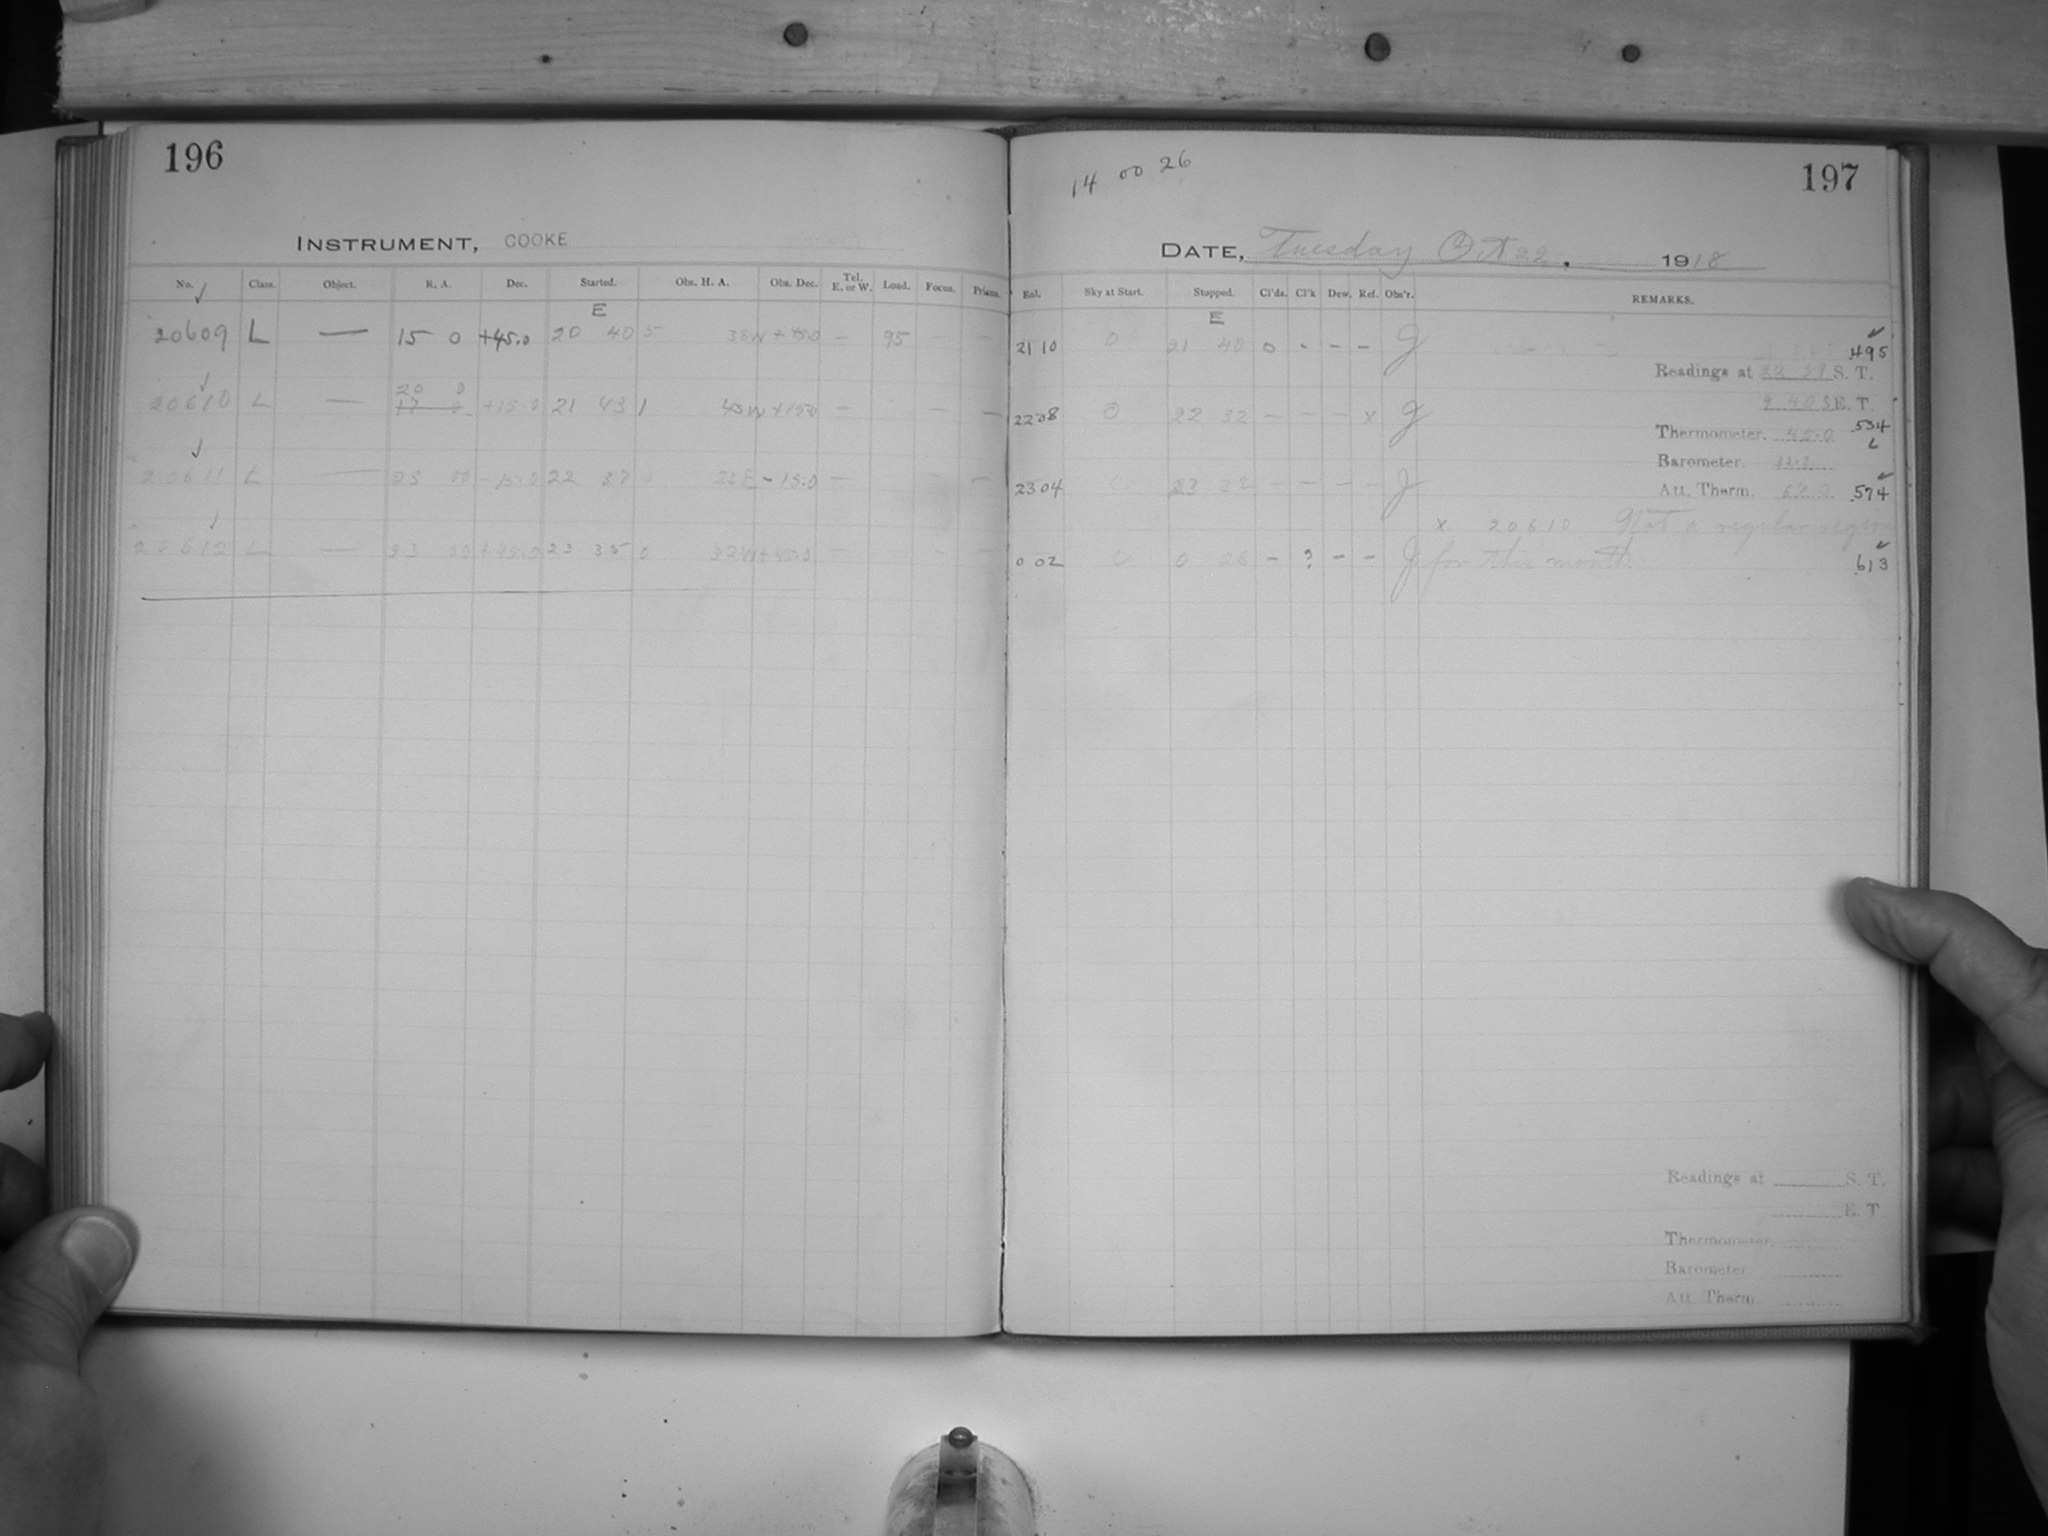 196
INSTRUMENT, COOKE
No. Class. Object. R. A. Dec. Started. Obs. H. A. Obs. Dec. Tel. E. or W. Load. Focus. Prisms.
E
20609 L — 15 0 +45.0 20 40 5 38W +45.0 — 95 —
20 0
20610 L — 17 0 +15.0 21 43 1 43W +15.0 — — —
20611 L — 23 00 -15.0 22 37 0 23E -15.0 — — —
20612 L — 23 00 +45.0 23 35 0 32W +45.0 — - -
14 00 26
197
DATE, Tuesday Oct 22, 1918
Eol. Sky at Start. Stopped. Cl'ds. Cl'k Dew. Ref. Obs'r. REMARKS.
E
21 10 0 21 40 0 - - - g
495
Readings at S. T.
9 40 E. T.
22 08 0 22 32 - - - x g
534
Thermometer. 45.0
L
Barometer.
23 04 23 32 - - - - g
Att. Therm. 574
x 20610 Not a regular region
0 02 0 26 - ? - - g for this month.
613
Readings at S. T.
E. T.
Thermometer.
Barometer
Att. Therm.